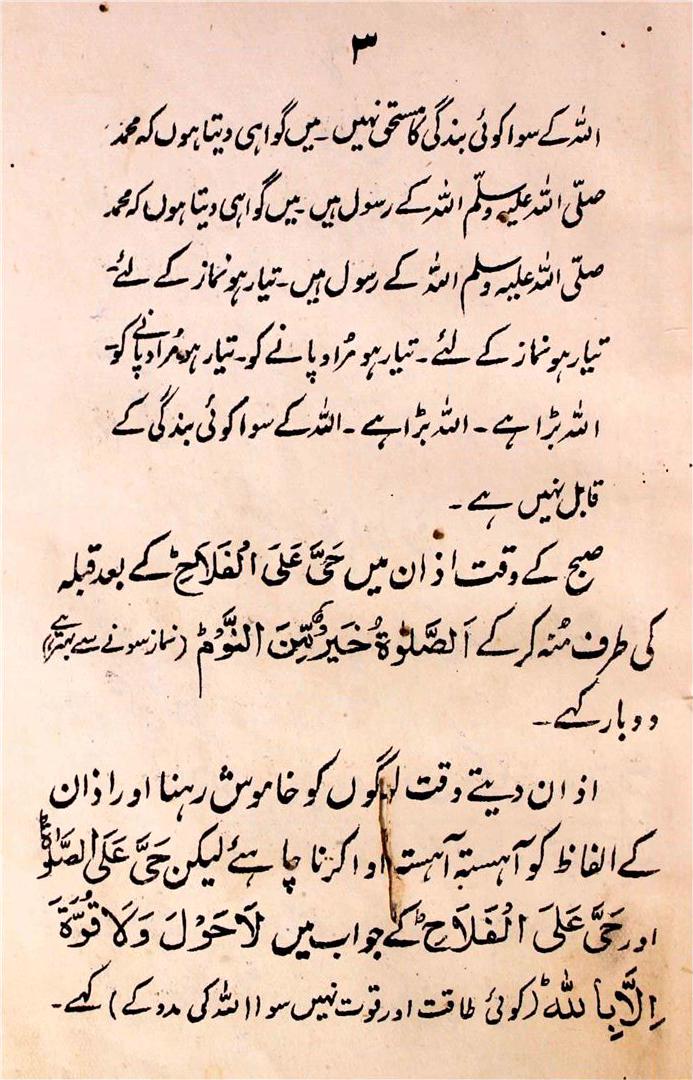 ۳
اللہ کے سوا کوئی بندگی کا مستحق نہیں۔ میں گواہی دیتا ہوں کہ محمد
صلّی اللہ علیہ وسلّم اللہ کے رسول ہیں۔ میں گواہی دیتا ہوں کہ محمد
صلّی اللہ علیہ وسلم اللہ کے رسول ہیں۔ تیار ہو نماز کے لئے۔
تیار ہو نماز کے لئے۔ تیار ہو مُراد پانے کو۔ تیار ہو مُراد پانے کو۔
اللہ بڑا ہے۔ اللہ بڑا ہے۔ اللہ کے سوا کوئی بندگی کے
قابل نہیں ہے۔
صبح کے وقت اذان میں حَیَّ عَلَی الْفَلَاحِؕ کے بعد قبلہ
کی طرف مُنہ کر کے اَلصَّلٰوۃُ خَیْرٌ مِّنَ النَّوْمِؕ (نماز سونے سے بہتر ہے)
دو بار کہے۔
اذان دیتے وقت لوگوں کو خاموش رہنا اور اذان
کے الفاظ کو آہستہ آہستہ ادا کرنا چاہئے لیکن حَیَّ عَلَی الصَّلٰوۃِ
اور حَیَّ عَلَی الْفَلَاحِؕ کے جواب میں لَاحَوْلَ وَلَا قُوَّۃَ
اِلَّا بِاللہِؕ (کوئی طاقت اور قوت نہیں سوا اللہ کی مدد کے) کہے۔